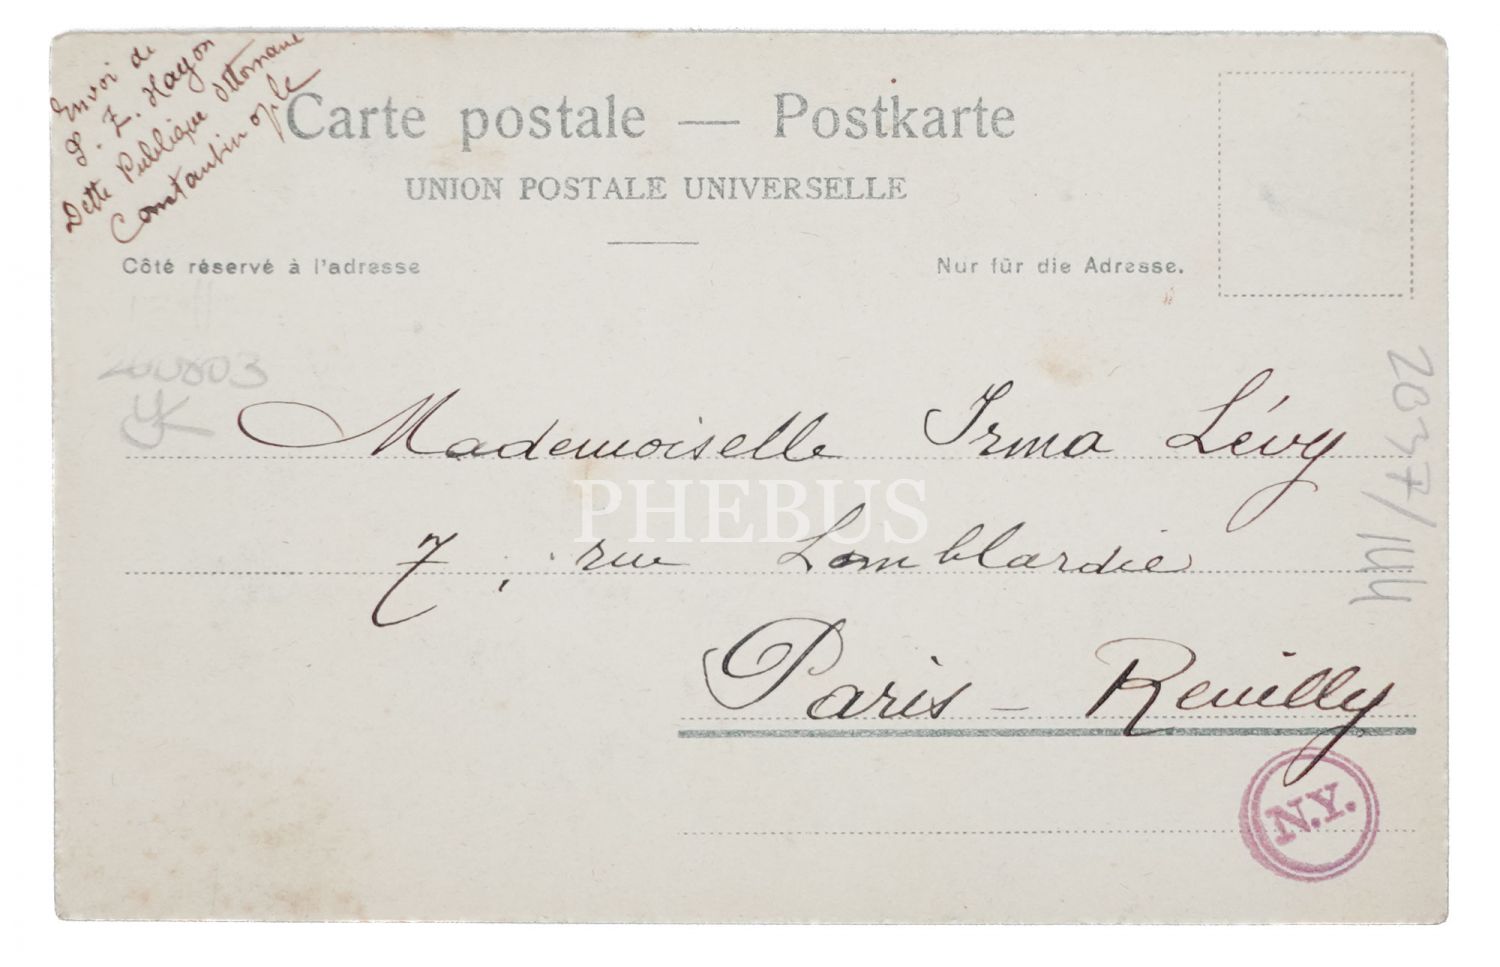 Envoi de
S. Z. Hayon
Dette Publique Ottomane
Constantinople
Carte postale — Postkarte
UNION POSTALE UNIVERSELLE
Côté réservé à l'adresse
Nur für die Adresse.
Mademoiselle Irma Lévy
PHEBUS
7, rue Lomblardie
Paris - Reuilly
N.Y.
2037/144